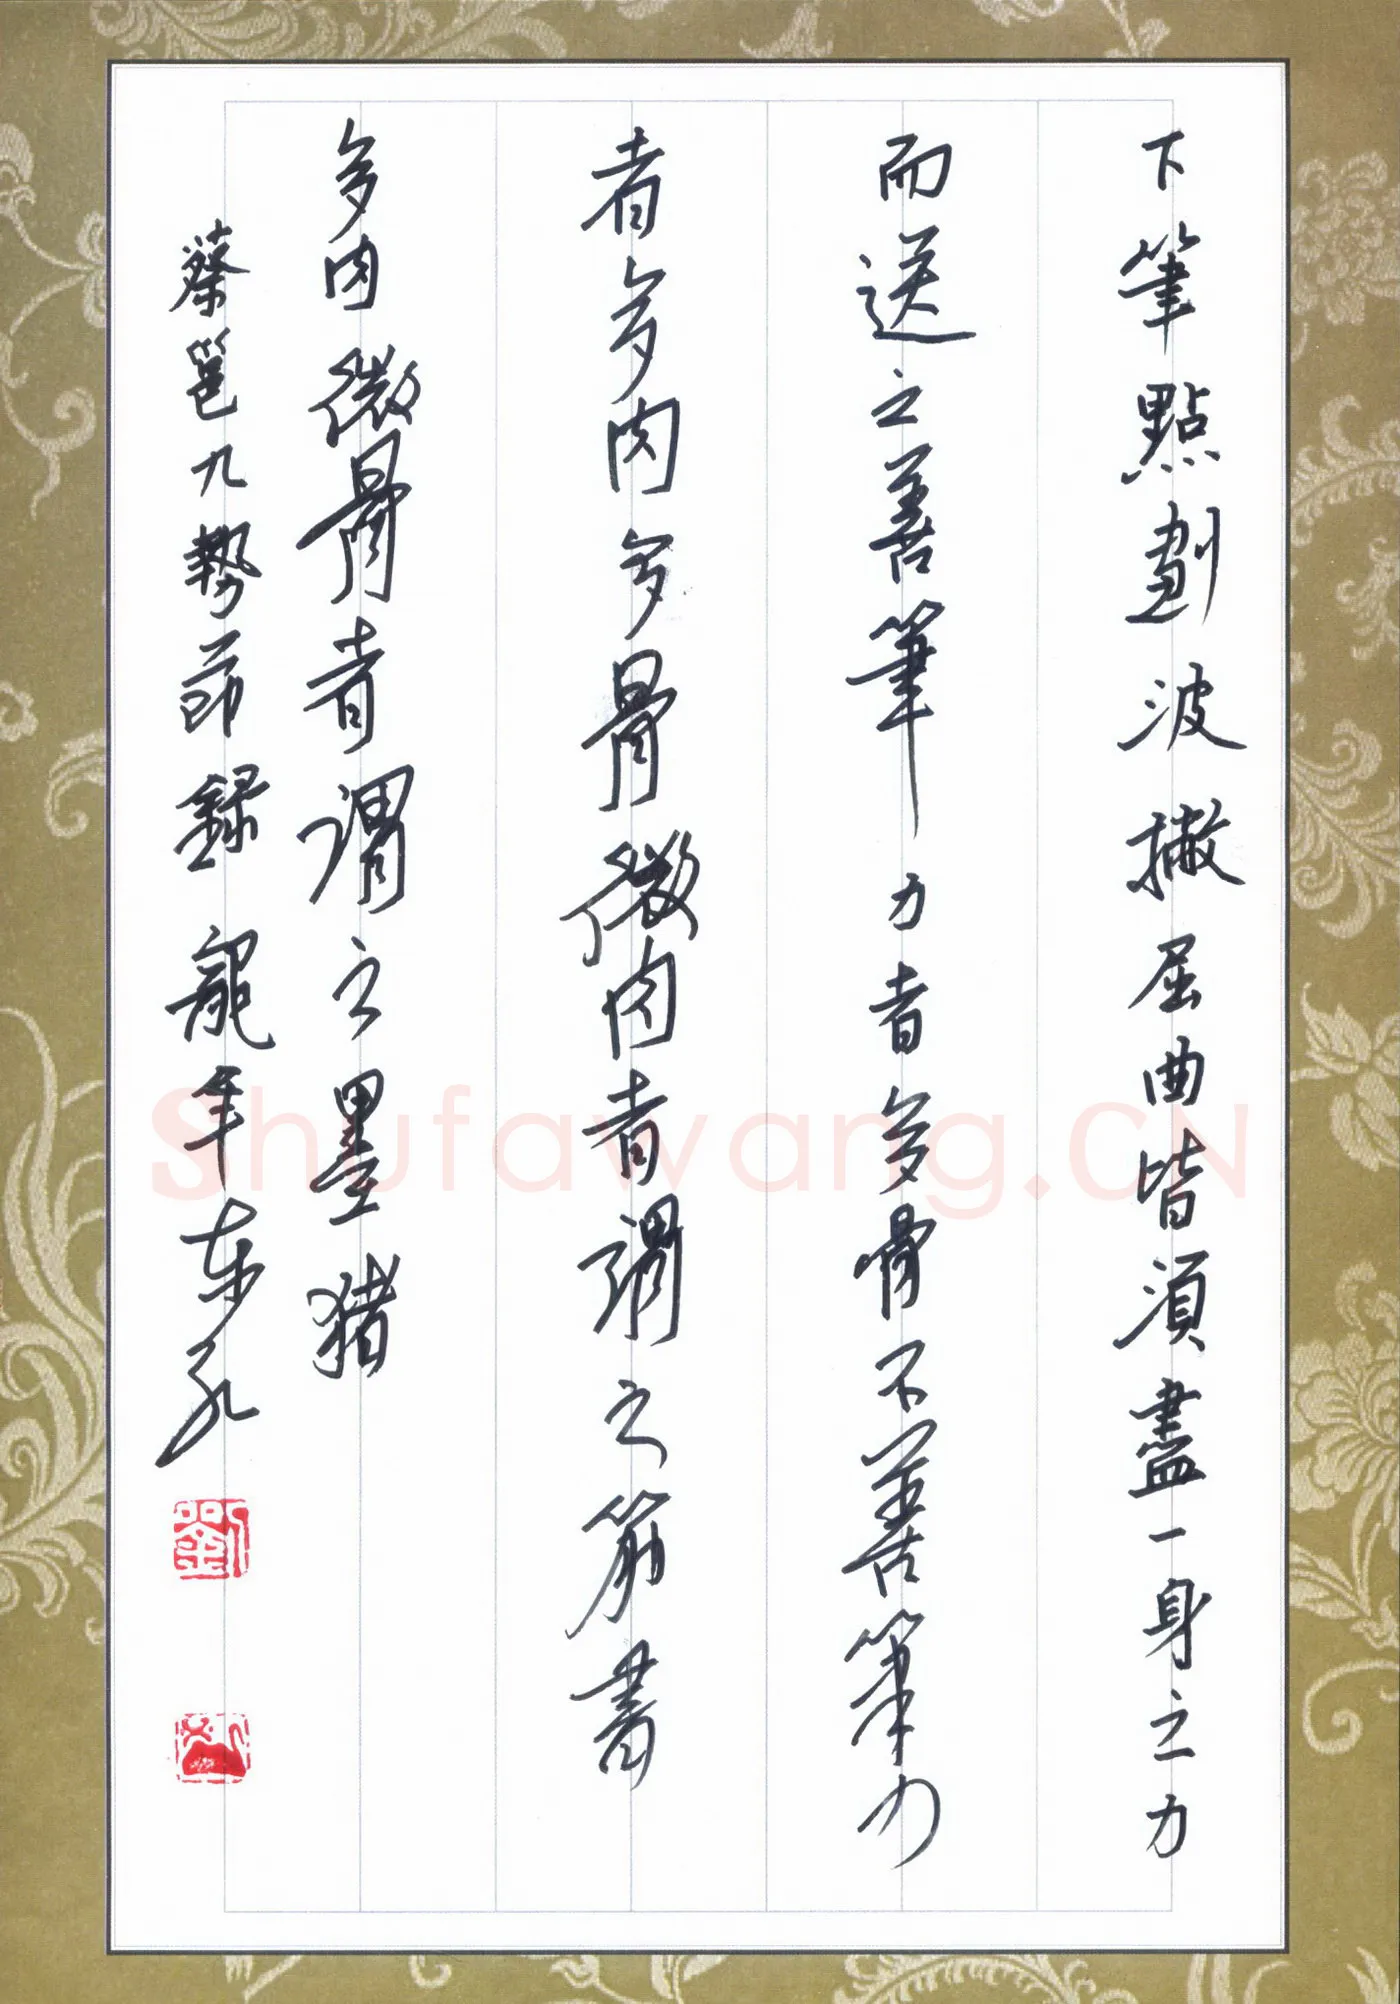 下筆點劃波撇屈曲皆須盡一身之力
而送之善筆力者多骨不善筆力
者多肉多骨微肉者謂之筋書
多肉微骨者謂之墨猪
蔡邕九勢節錄龍年东孔
劉
Shufawang.CN